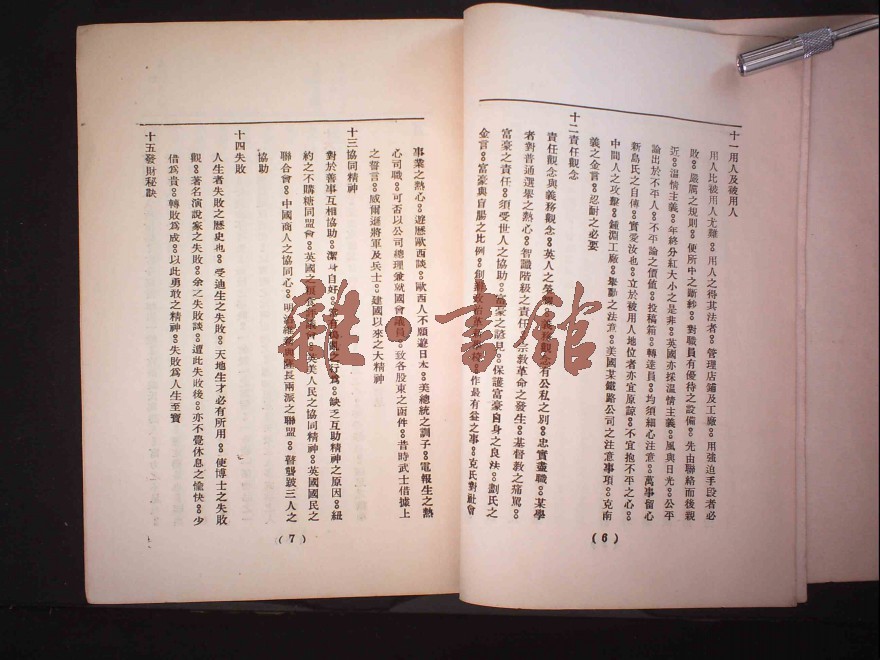 十一用人及被用人
用人比被用人尤難。用人之得其法者。管理店鋪及工廠。用強迫手段者必
敗。嚴厲之規則。使所中之斷紗。對職員有優待之設備。先由聯絡而後親
近。溫情主義。年終分紅大小之是非。英國亦採溫情主義。風與日光。公平
論出於不平人。不平論之價值。投稿箱。轉達員。均須細心注意。萬事留心
新島氏之自傳。實愛汝也。立於被用人地位者亦宜原諒。不宜抱不平之心。
中間人之攻擊。鐘淵工廠。舉動之法意。美國某鐵路公司之注意事項。克南
義之金言。忍耐之必要
十二責任觀念
責任觀念與義務觀念。英人之 義務觀念有公私之別。忠實盡職。某學
者對普通選舉之熱心。智識階級之責任。宗教革命之發生。基督教之痛罵。
富豪之責任。須受世人之協助。富豪之謬見。保護富豪自身之良法。劉氏之
金言。富豪與盲腸之比例。創 作最有益之事。克氏對社會
(6)
事業之熱心。遊歷歐西談。歐西人不願遊日本。美總統之調子。電報生之熱
心司職。可否以公司總理兼就國會議員。致各股東之函件。昔時武士借據上
之誓言。威爾遜將軍及兵士。建國以來之大精神
十三協同精神
對於善事互相協助。潔身自好。 之行為。缺乏互助精神之原因。紐
約之不購糖同盟會。英國之 會。英美人民之協同精神。英國國民之
聯合會。中國商人之協同心。明治維新與薩長兩派之聯盟。瞽聾跛三人之
協助
十四失敗
人生者失敗之歷史也。愛迪生之失敗。天地生才必有所用。使博士之失敗
觀。著名演說家之失敗。余之失敗談。遭此失敗後。亦不覺休息之愉快。少
借為貴。轉敗為成。以此勇敢之精神。失敗為人生至寶
十五發財秘訣
(7)
雜·書館